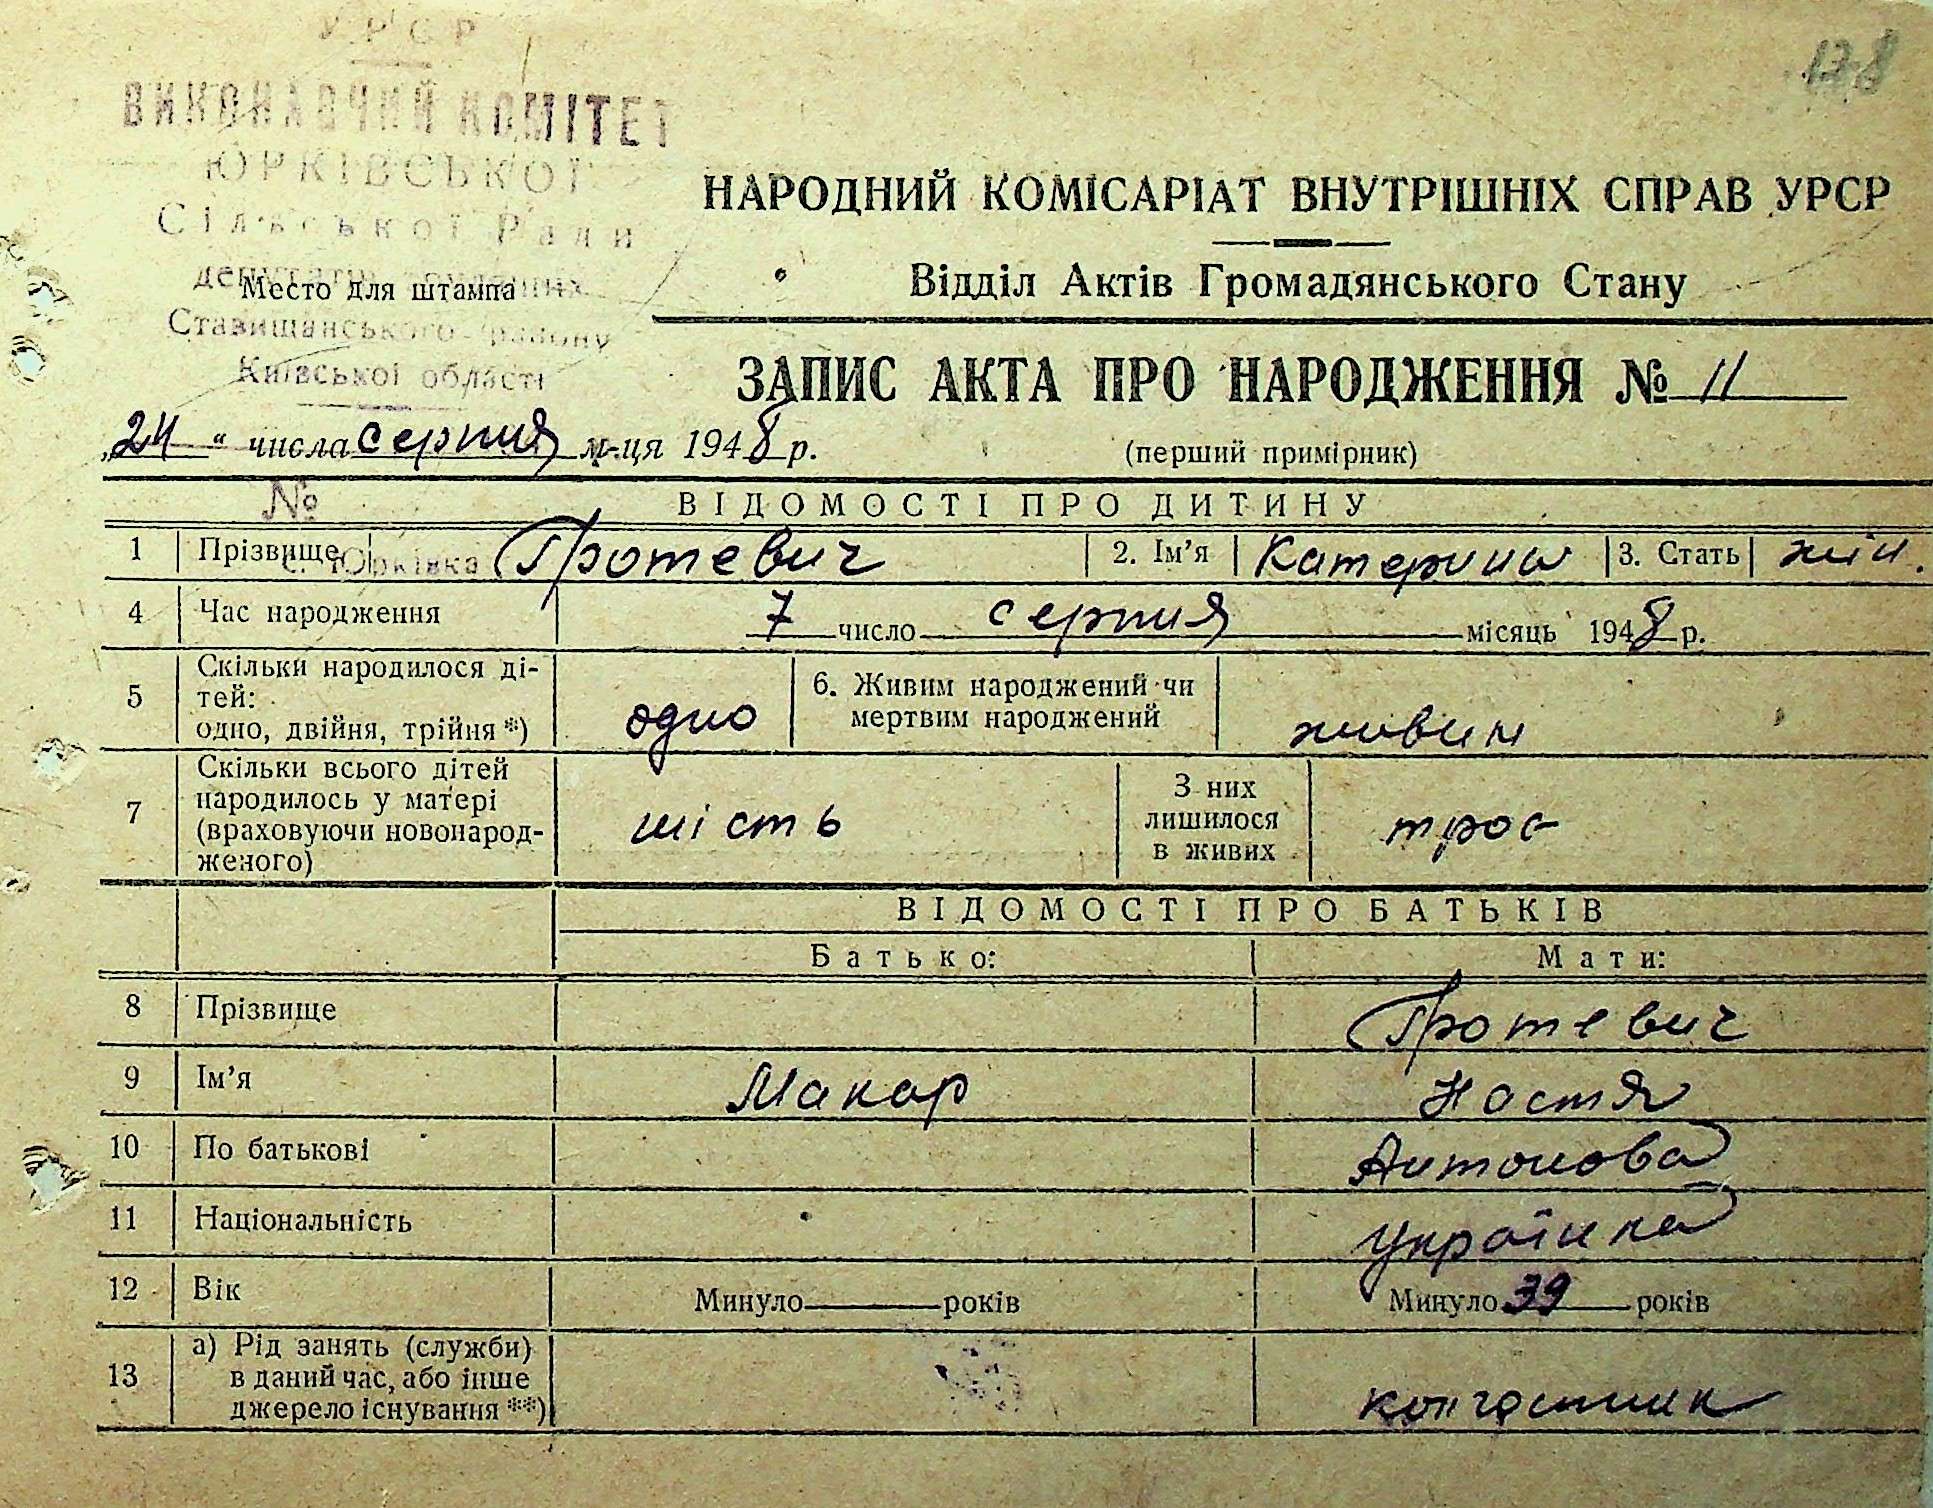 УРСР
138
ВИКОНАВЧИЙ КОМІТЕТ
ЮРКІВСЬКОЇ
Сільської Ради
депутатів трудящих
Место для штампа
Ставищанського району
Київської області
НАРОДНИЙ КОМІСАРІАТ ВНУТРІШНІХ СПРАВ УРСР
Відділ Актів Громадянського Стану
ЗАПИС АКТА ПРО НАРОДЖЕННЯ № 11
„24“ числа серпня м-ця 1948 р. (перший примірник)
№
ВІДОМОСТІ ПРО ДИТИНУ
с. Юрківка
1 Прізвище Гротевич 2. Ім’я Катерина 3. Стать жін.
4 Час народження 7 число серпня місяць 1948 р.
5 Скільки народилося ді-
тей:
одно, двійня, трійня *) одно 6. Живим народжений чи
мертвим народжений живим
7 Скільки всього дітей
народилось у матері
(враховуючи новонарод-
женого) шість З них
лишилося
в живих троє
ВІДОМОСТІ ПРО БАТЬКІВ
Батько: Мати:
8 Прізвище Гротевич
9 Ім’я Макар Настя
10 По батькові Антонова
11 Національність Українка
12 Вік Минуло років Минуло 39 років
13 а) Рід занять (служби)
в даний час, або інше
джерело існування **) колгоспник